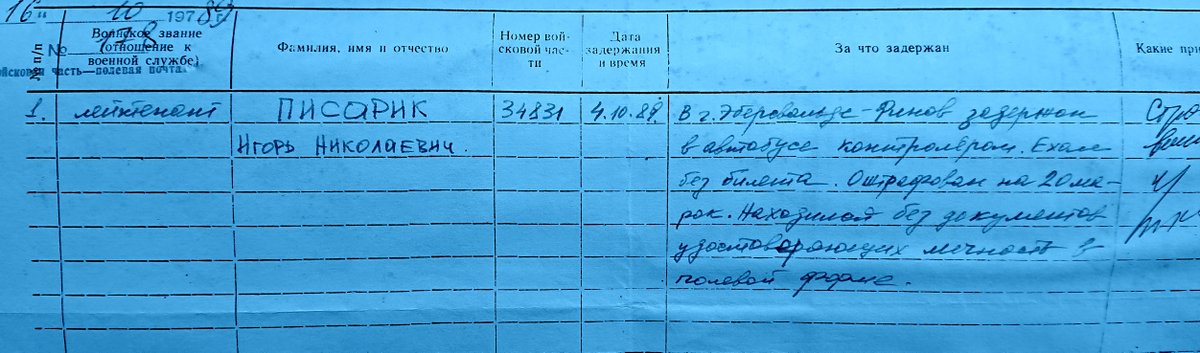 16 " 10 1978 89
№ 178
№ п/п
Воинское звание (отношение к военной службе)
войсковая часть—полевая почта
Фамилия, имя и отчество
Номер войсковой части
Дата задержания и время
За что задержан
Какие при
1. лейтенант ПИСАРИК 34831 4.10.89. В г. Эберсвальде-Финов задержан
ИГОРЬ НИКОЛАЕВИЧ. в автобусе контролёром. Ехал
без билета. Оштрафован на 20 ма-
рок. Находился без документов
удостоворяющих личность в
полевой форме.